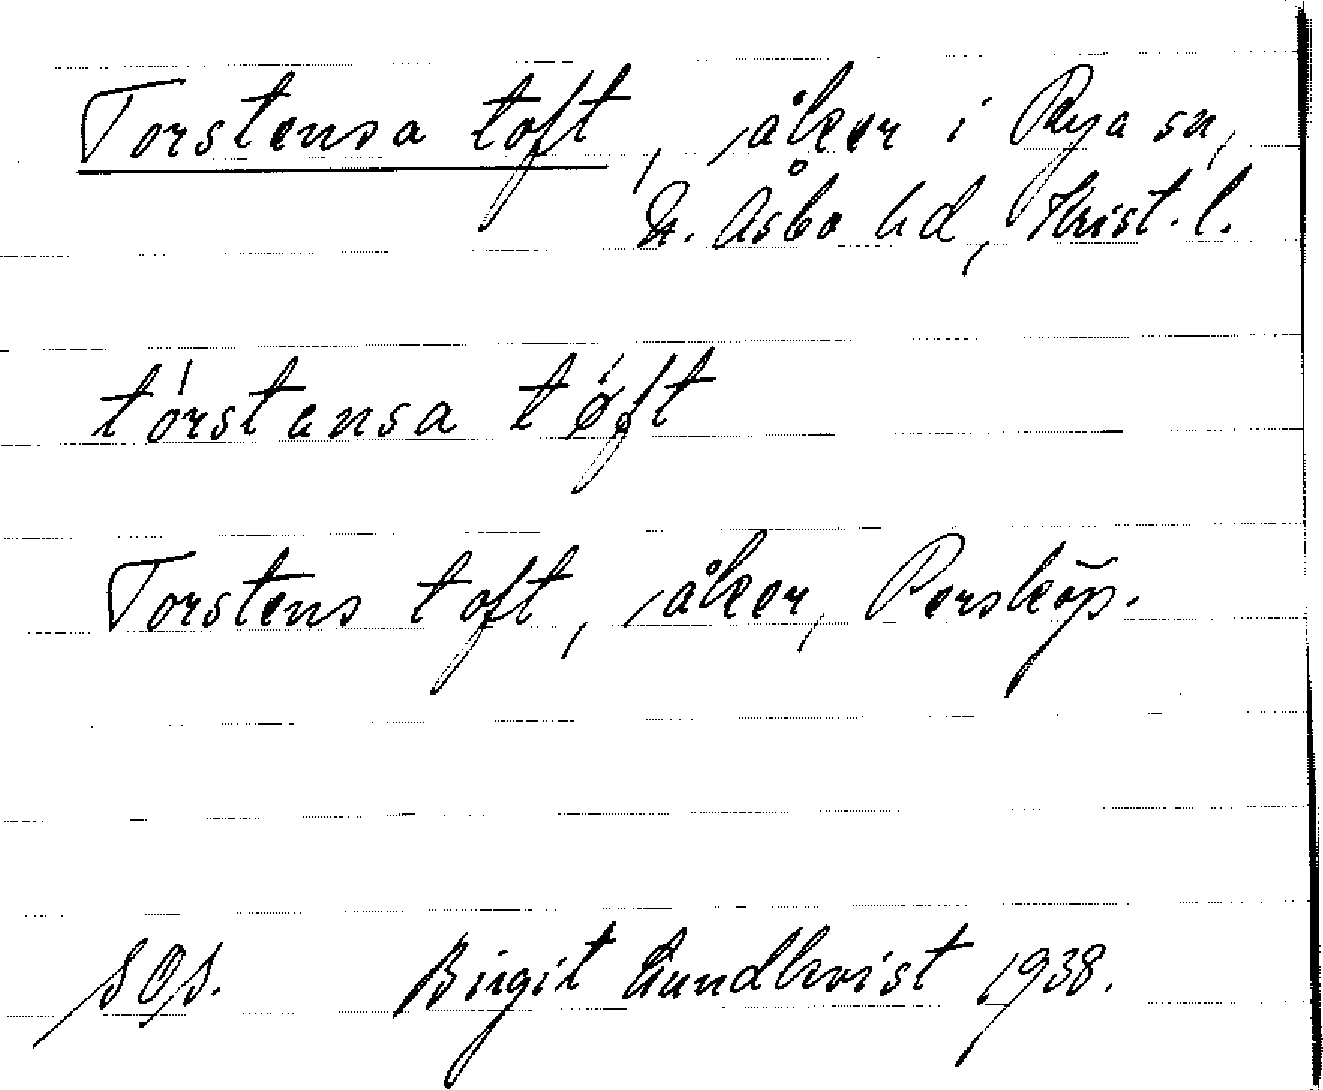 Torstensa toft, åker i Rya sn,
N. Åsbo hd, Krist. l.
tórstensa tǿft
Torstens toft, åker, Persköp.
SOS. Birgit Lundkvist 1938.